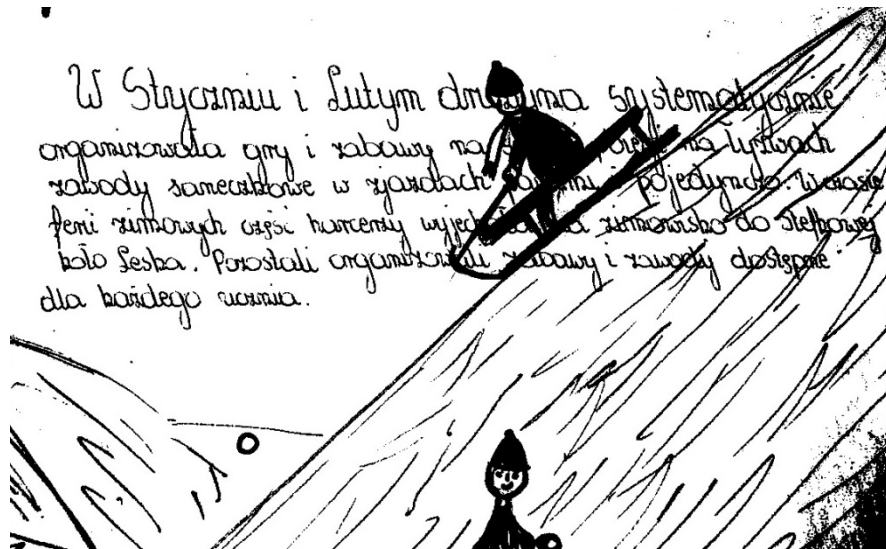 W Styczniu i Lutym drużyna systematycznie
organizowała gry i zabawy na na łyżwach
zawody saneczkowe w zjazdach i pojedynczo. W czasie
ferii zimowych część harcerzy zimowisko do Stefkowej
koło Leska. Pozostali organizowali zabawy i zawody dostępne
dla każdego ucznia.